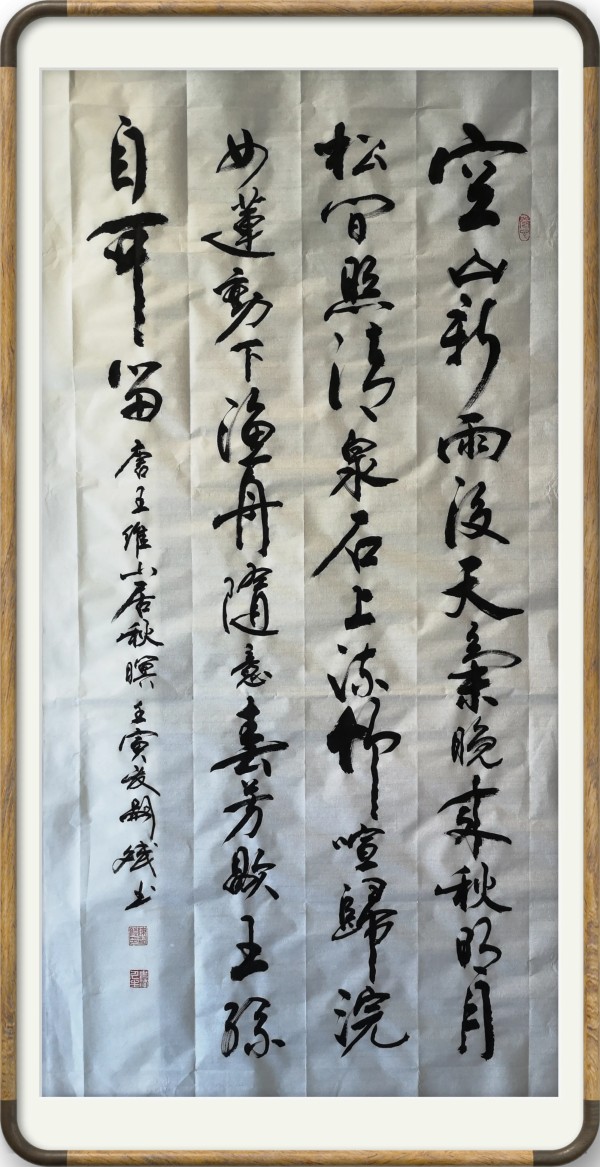 空山新雨後天氣晚來秋明月
松間照清泉石上流竹喧歸浣
女蓮動下漁舟隨意春芳歇王孫
自可留
唐王維山居秋暝 壬寅夏 斌书